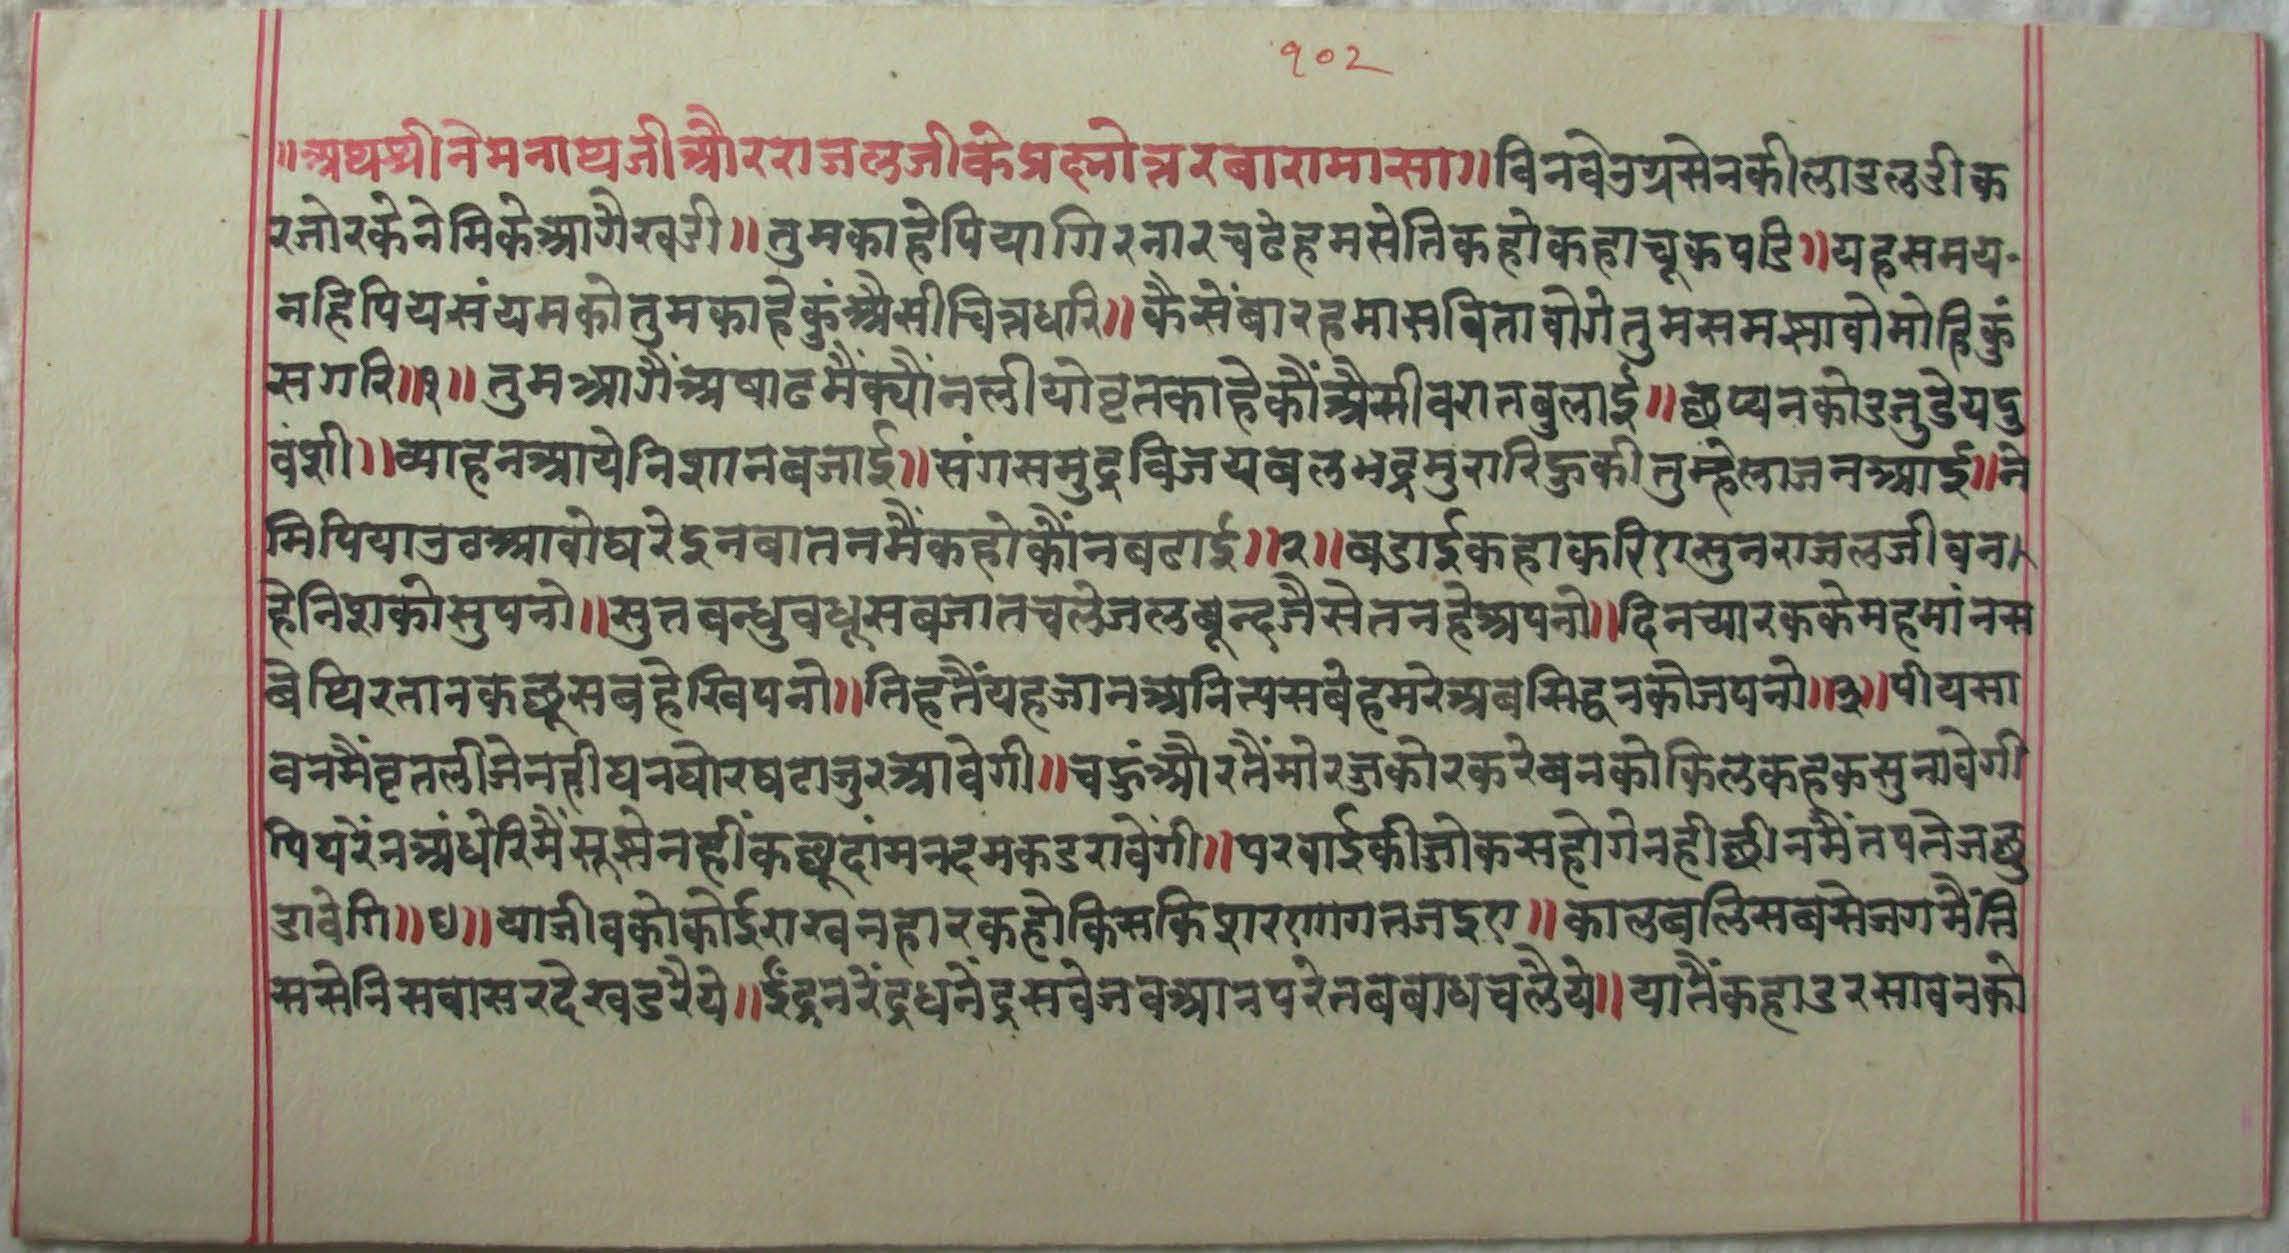 १०२
॥अथश्रीनेमनाथजीऔरराजलजीकेप्रश्नोत्तरबारामासा॥विनवेउग्रसेनकीलाडलडीक
रजोरकेनेमिकेआगैखडी॥तुमकाहेपियागिरनारचढेहमसेतिकहोकहाचूकपडि॥यहसमय
नहिपियसंयमकोतुमकाहेकुंऔसीचित्तधरि॥कैसेंबारहमासवितावोगेतुमसमझावोमोहिकुं
सगरि॥१॥तुमआगैंअषाढमैंक्यौंनलीयोवृतकाहेकौंऔसीवरातबुलाई॥छप्यनकोडजुडेयदु
वंशी॥व्याहनआयेनिशानबजाई॥संगसमुद्रविजयबलभद्रमुरारिहुकीतुम्हेलाजनआई॥ने
मिपियाउवआवोघरेइनबातनमैंकहोकौंनबढाई॥२॥बडाईकहाकरिएसुनराजलजीवन
हेनिशकोसुपनो॥सुतबन्धुवधूसबजातचलेजलबून्दजैसेतनहेअपनो॥दिनच्यारककेमहमांनस
बेथिरतानकछूसबहेखिपनो॥तिहतैंयहजानअनित्यसबेहमरेअबसिद्धनकोजपनो॥३॥पीयसा
वनमैंवृतलीजेनहीघनघोरघटाजुरआवेगी॥चहुंऔरतैंमोरजुकोरकरेबनकोकिलकहकसुनावेगी
पियरेंनअंधेरिमैंसूझेनहींकछूदांमनदमकडरावेंगी॥परवाईकीजोकसहोगेनहीछीनमैंतपतेजछु
डावेगि॥४॥याजीवकोकोईराखनहारकहोकिसकिशरणागतजइए॥कालबलिसबसेजगमैंति
ससेनिसवासरदेखडरैये॥ईंद्रनरेंद्रधनेंद्रसवेजवआनपरेतबबाधचलैये॥यातैंकहाडरसावनको